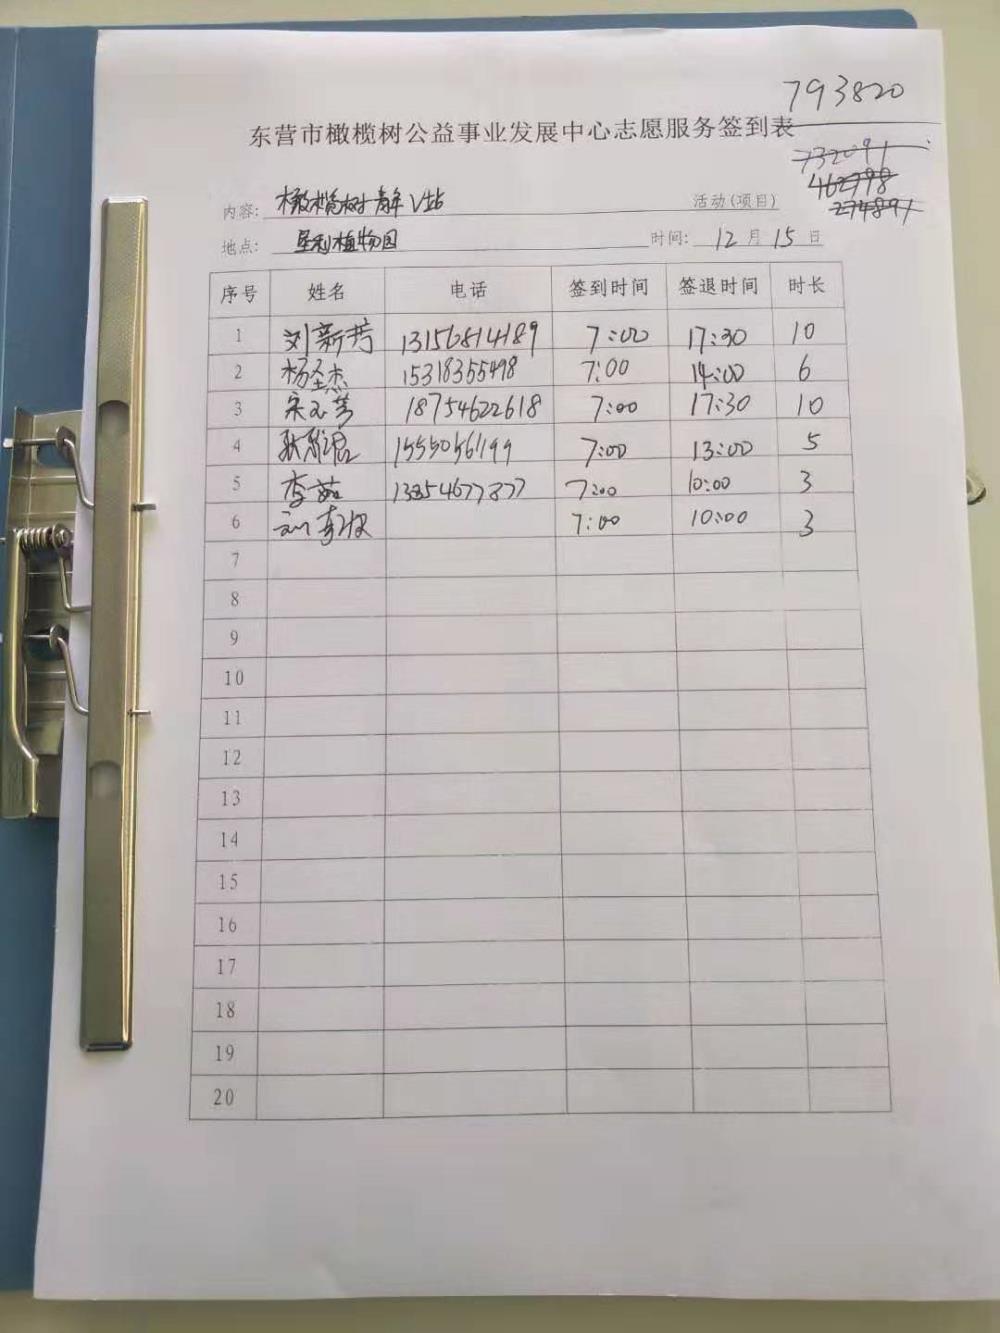 793820
东营市橄榄树公益事业发展中心志愿服务签到表
732091
462798
274891
内容: 橄榄树青年V站 活动(项目)
地点: 垦利植物园 时间: 12月15日
序号 姓名 电话 签到时间 签退时间 时长
1 刘新芳 13156814189 7:00 17:30 10
2 杨圣杰 15318355498 7:00 14:00 6
3 宋玉芳 18754622618 7:00 17:30 10
4 15550561199 7:00 13:00 5
5 李茹 7:00 10:00 3
6 7:00 10:00 3
7
8
9
10
11
12
13
14
15
16
17
18
19
20